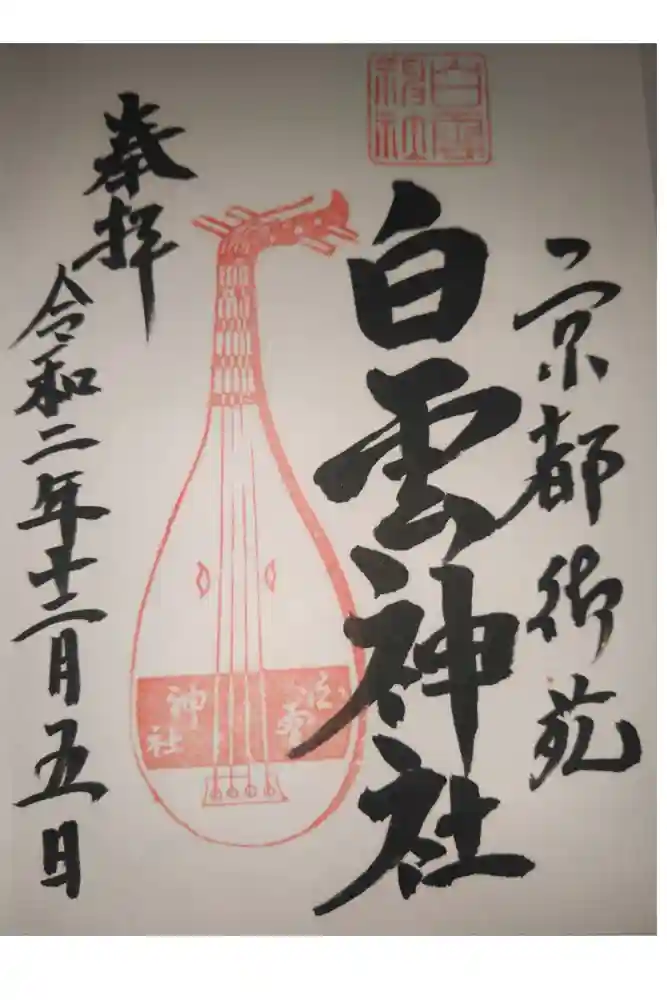 京都御苑
白雲神社
白雲神社
奉拝
令和二年十二月五日
神社